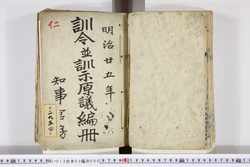 明治廿五年
訓令並訓示原議編冊
知事官房
仁